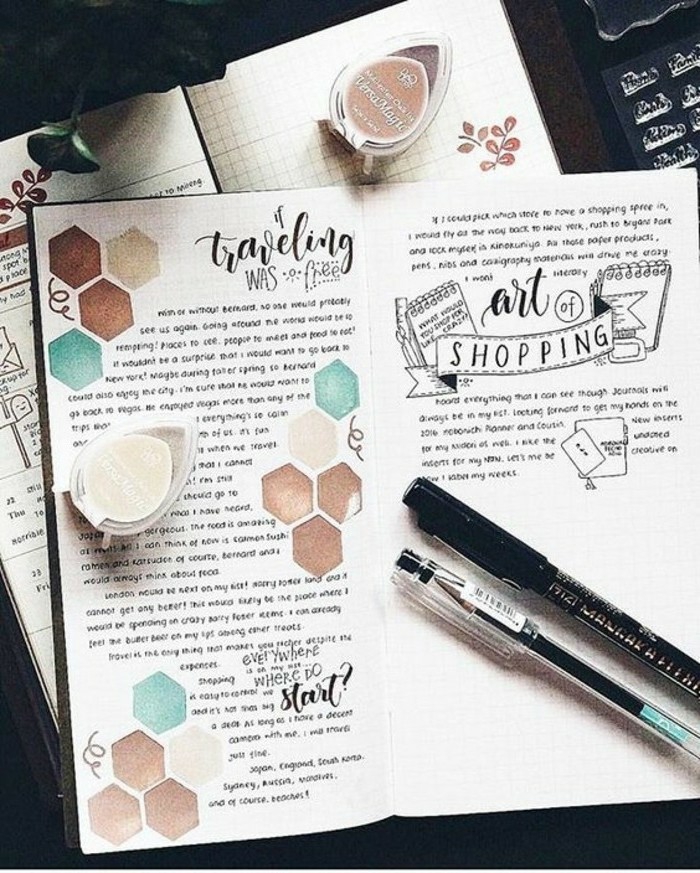 if
traveling
WAS free
With or without Bernard, no one would probably
see us again. Going around the world would be so
tempting! Places to see, people to meet and food to eat!
It wouldn't be a surprise that I would want to go back to
New York! Maybe during fall or spring so Bernard
could also enjoy the city. I'm sure he would want to
go back to Vegas. He enjoyed Vegas more than any of the
trips
everything's so calm
of us. It's fun
when we travel.
that I cannot
! I'm still
should go to
what I have heard,
Japan gorgeous. The food is amazing
as well! All I can think of now is salmon sushi
ramen and katsudon of course, Bernard and I
would always think about food.
London would be next on my list! Harry Potter land and it
cannot get any better! This would likely be the place where I
would be spending on crazy Harry Potter items. I can already
feel the butter beer on my lips among other treats.
Travel is the only thing that makes you richer despite the
expenses.
everywhere
is on my list..
Shopping WHERE DO
is easy to control we start?
and it's not that big
a deal. As long as I have a decent
camera with me, I will travel
just fine.
Japan, England, South Korea,
Sydney, Russia, Maldives,
and of course, beaches!
If I could pick which store to have a shopping spree in,
I would fly all the way back to New York, rush to Bryant Park
and lock myself in Kinokuniya. All those paper products,
pens, nibs and calligraphy materials will drive me crazy.
I want literally
art of
SHOPPING
WHAT WOULD
YOU SHOP FOR
LIKE CRAZY?
hoard everything that I can see though. Journals will
always be in my list. Looking forward to get my hands on the
2016 Hobonichi Planner and Cousin. New inserts
for my Midori as well. I like the undated
inserts for my MTN. Let's me be creative on
how I label my weeks.
VersaMagic
VersaMagic
MANGAKA